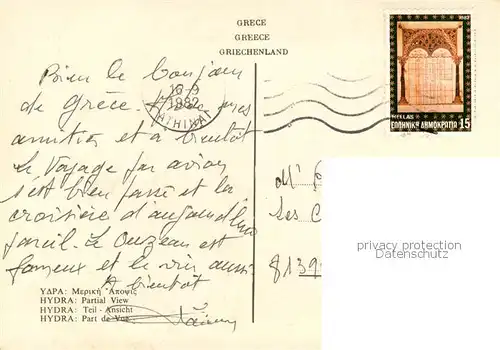 GRECE
GREECE
GRIECHENLAND
1982
HELLAS
ΕΛΛΗΝΙΚΗ ΔΗΜΟΚΡΑΤΙΑ 15
16-9
1982
ΑΘΗΝΑΙ
Bien le bonjour
de Grèce. mes
amitiés et a bientôt
Le Voyage par avion
s'est bien passé et la
croisière d'aujourd'hui
pareil. Le Ouzeau est
fameux et le vin aussi
A bientôt
Mr
Les C
8139
privacy protection
Datenschutz
ΥΔΡΑ: Μερική Άποψις
HYDRA: Partial View
HYDRA: Teil - Ansicht
HYDRA: Part de Vue